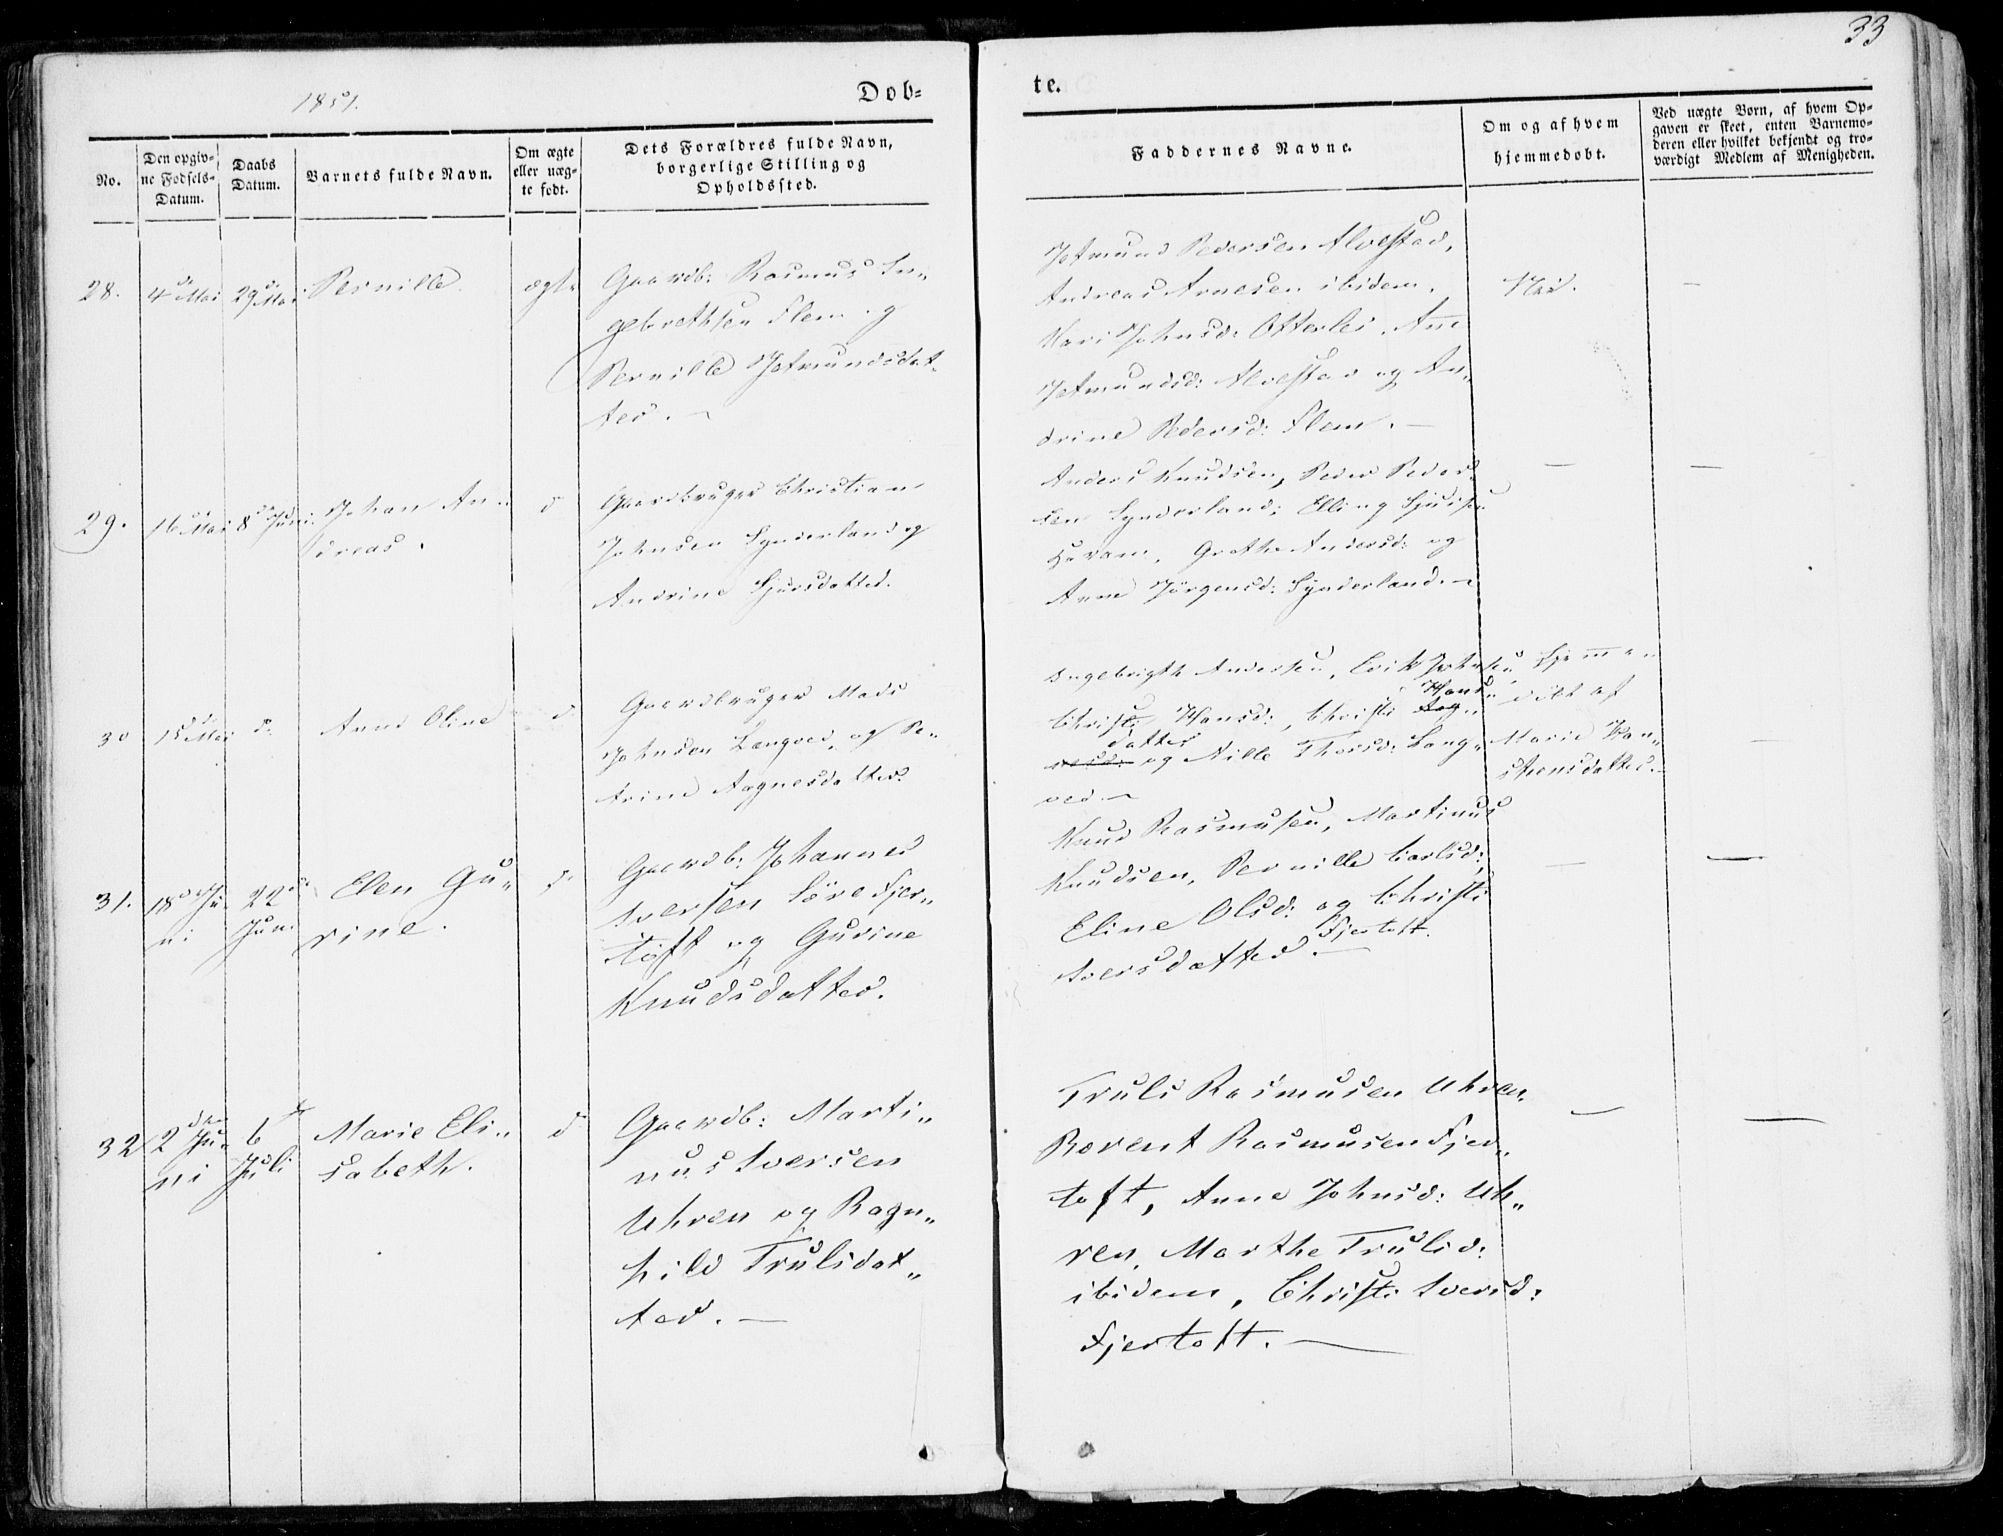 33
1851.
Dob-
te.
No.
Den opgiv-
ne Fodsels-
Datum.
Daabs
Datum.
Barnets fulde Navn.
Om ægte
eller uæg-
te fodt.
Dets Forældres fulde Navn,
borgerlige Stilling og
Opholdssted.
Faddernes Navne.
Om og af hvem
hjemmedobt.
Ved uægte Born, af hvem Op-
gaven er skeet, enten Barnemo-
deren eller hvilket bekjendt og tro-
værdigt Medlem af Menigheden.
28.
4de Mai
29de Mai
Pernille.
ægte
Gaardb: Rasmus In-
gebrethsen Flem og
Pernille Jetmundsdat-
ter. —
Jetmund Pedersen Alvestad,
Andreas Arnesen ibidem,
Kari Johnsd: Otterlei, Ane
Jetmundsd: Alvestad og An-
drine Pedersd: Flem. —
Nei.
—
29.
16de Mai
8de Juni
Johan An-
dreas.
d
Gaardbruger Christian
Johnsen Synderland og
Andrine Sjursdatter.
Anders Knudsen, Peder Peder-
sen Synderland, Elling Sjursen
Havam, Grethe Andersd: og
Anne Jörgensd: Synderland. —
—
—
30
15de Mai
d.
Anne Oline
d
Gaardbruger Mads
Johnsen Længved, og Pe-
trine Aagnesdatter.
Ingebrigth Andersen, Erik Johnsen
Christi Hansd:, Christi Aag- Hans
nesd: datter og Nille Thorsd: Læng-
ved. —
Hjemme-
döbt af
Marie Kar-
stensdatter.
—
31.
18de Ju-
ni
22de
Juni
Elen Gu-
rine.
d
Gaardb: Johannes
Iversen Söre Fjer-
toft og Gurine
Knudsdatter.
Knud Rasmusen, Martinus
Knudsen, Pernille Carlsd:,
Eline Olsd: og Christi
Iversdatter Fjertoft. —
—
—
32
2den Ju-
ni
6te
Juli
Marie Eli-
sabeth.
d
Gaardb: Marti-
nus Iversen
Uhren og Ragn-
hild Trulsdat-
ter. —
Truls Rasmusen Uhren,
Berent Rasmusen Fjer-
toft, Anne Johnsd: Uh-
ren, Marthe Trulsd:
ibidem, Christi Iversd:
Fjertoft. —
—
—